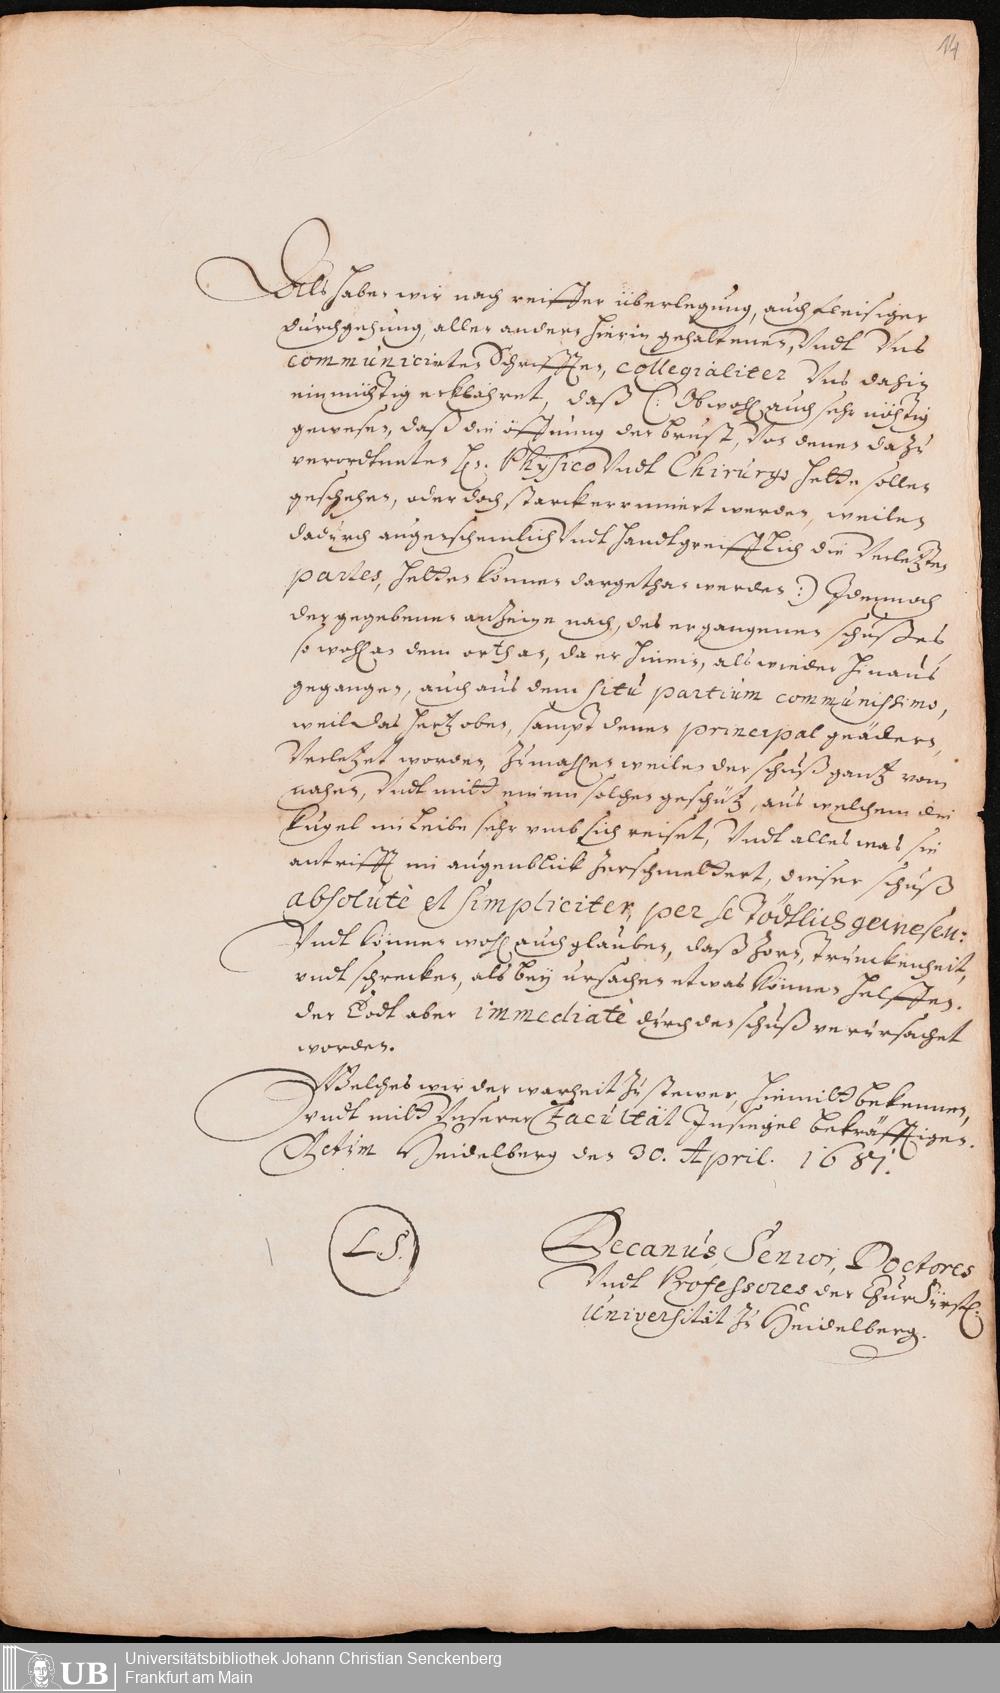 14
Als haben wir nach reiffer überlegung, auch fleisiger
durchgehung, aller andern hierin gehaltenen, Undt Uns
communicirten Schrifften, collegialiter Uns dahin
einmühtig erklähret, daß (: Obwohl auch sehr nöhtig
gewesen, daß die öffnung der brust, Von denen dazu
verordtneten Hn. Physico Undt Chirurgo hette sollen
geschehen, oder doch starck erruiniert werden, weilen
dadurch augenscheinlich Undt handtgreifflich die Verletzten
partes, hetten können dargethan werden :) Idennoch
der gegebenen anzeige nach, des ergangenen schußes,
so wohl an dem orth an, da er hinein, als wieder hinaus
gegangen, auch aus dem situ partium communissimo,
weil das hertz oben, sampt denen principal geädern,
Verletzet worden, Zumahlen weilen der schuß gantz vom
nahen, Undt mitt einem solchen geschütz, aus welchem die
Kugel im Leibe sehr umb sich reiset, Undt alles was sie
antrifft im augenblick zerschmettert, dieser schuß
absolute et simpliciter, per se Tödtlich gewesen:
Undt können wohl auch glauben, daß Zorn, trunckenheit,
undt schrecken, als bey ursachen etwas können helffen.
der Todt aber immediatè durch den schuß verursachet
worden.
Welches wir der warheit zu stewer, hiemitt bekennen,
undt mitt Unserer Facultät Insiegel bekräfftigen.
Actum Heidelberg den 30. April. 1681.
L S.
Decanus, Senior, Doctores
Undt Professores der Churfürstl:
Universität zu Heidelberg.
UB
Universitätsbibliothek Johann Christian Senckenberg
Frankfurt am Main